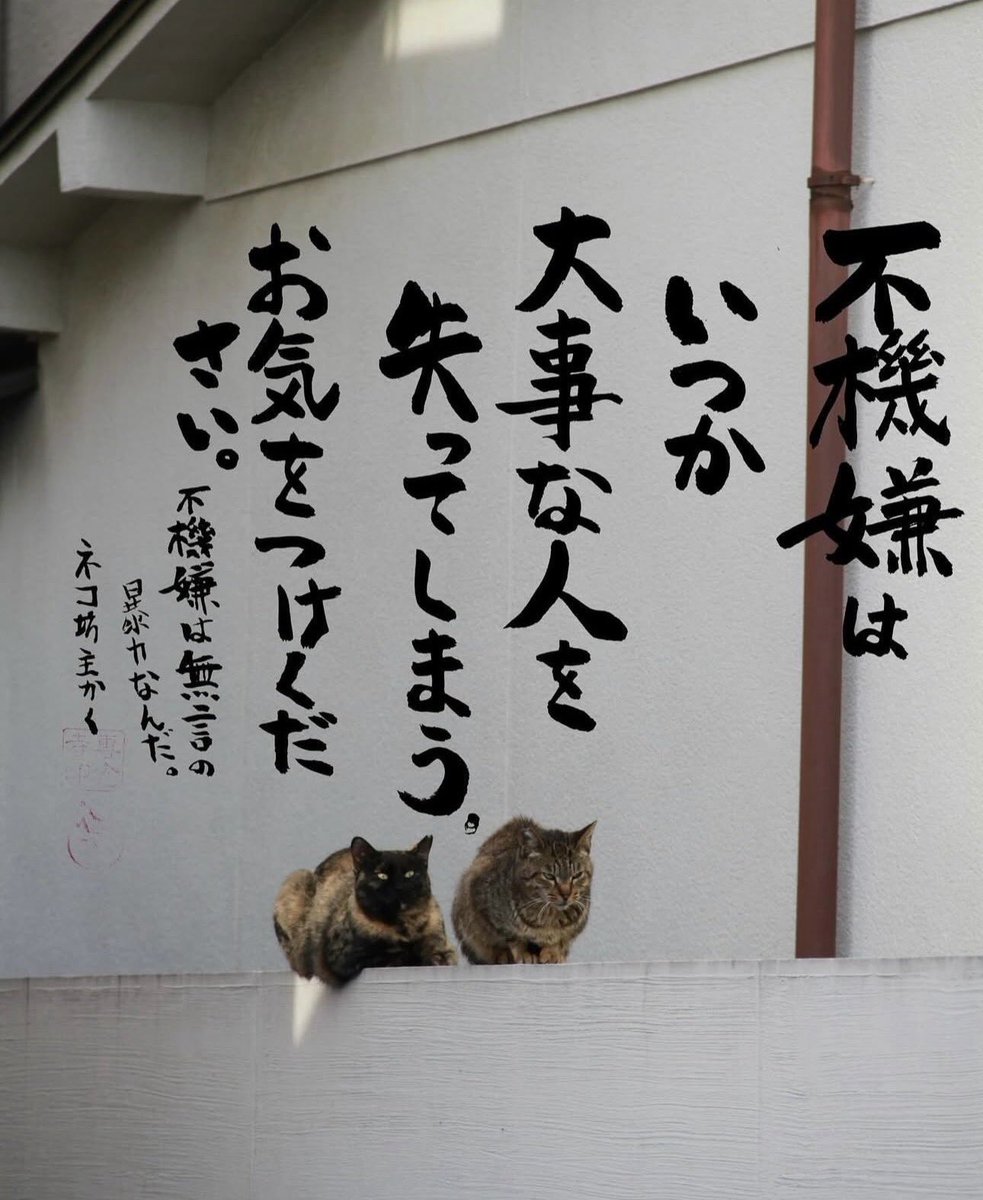 不機嫌は
いつか
大事な人を
失ってしまう。
お気をつけくだ
さい。
不機嫌は無言の
暴力なんだ。
ネコ坊主かく